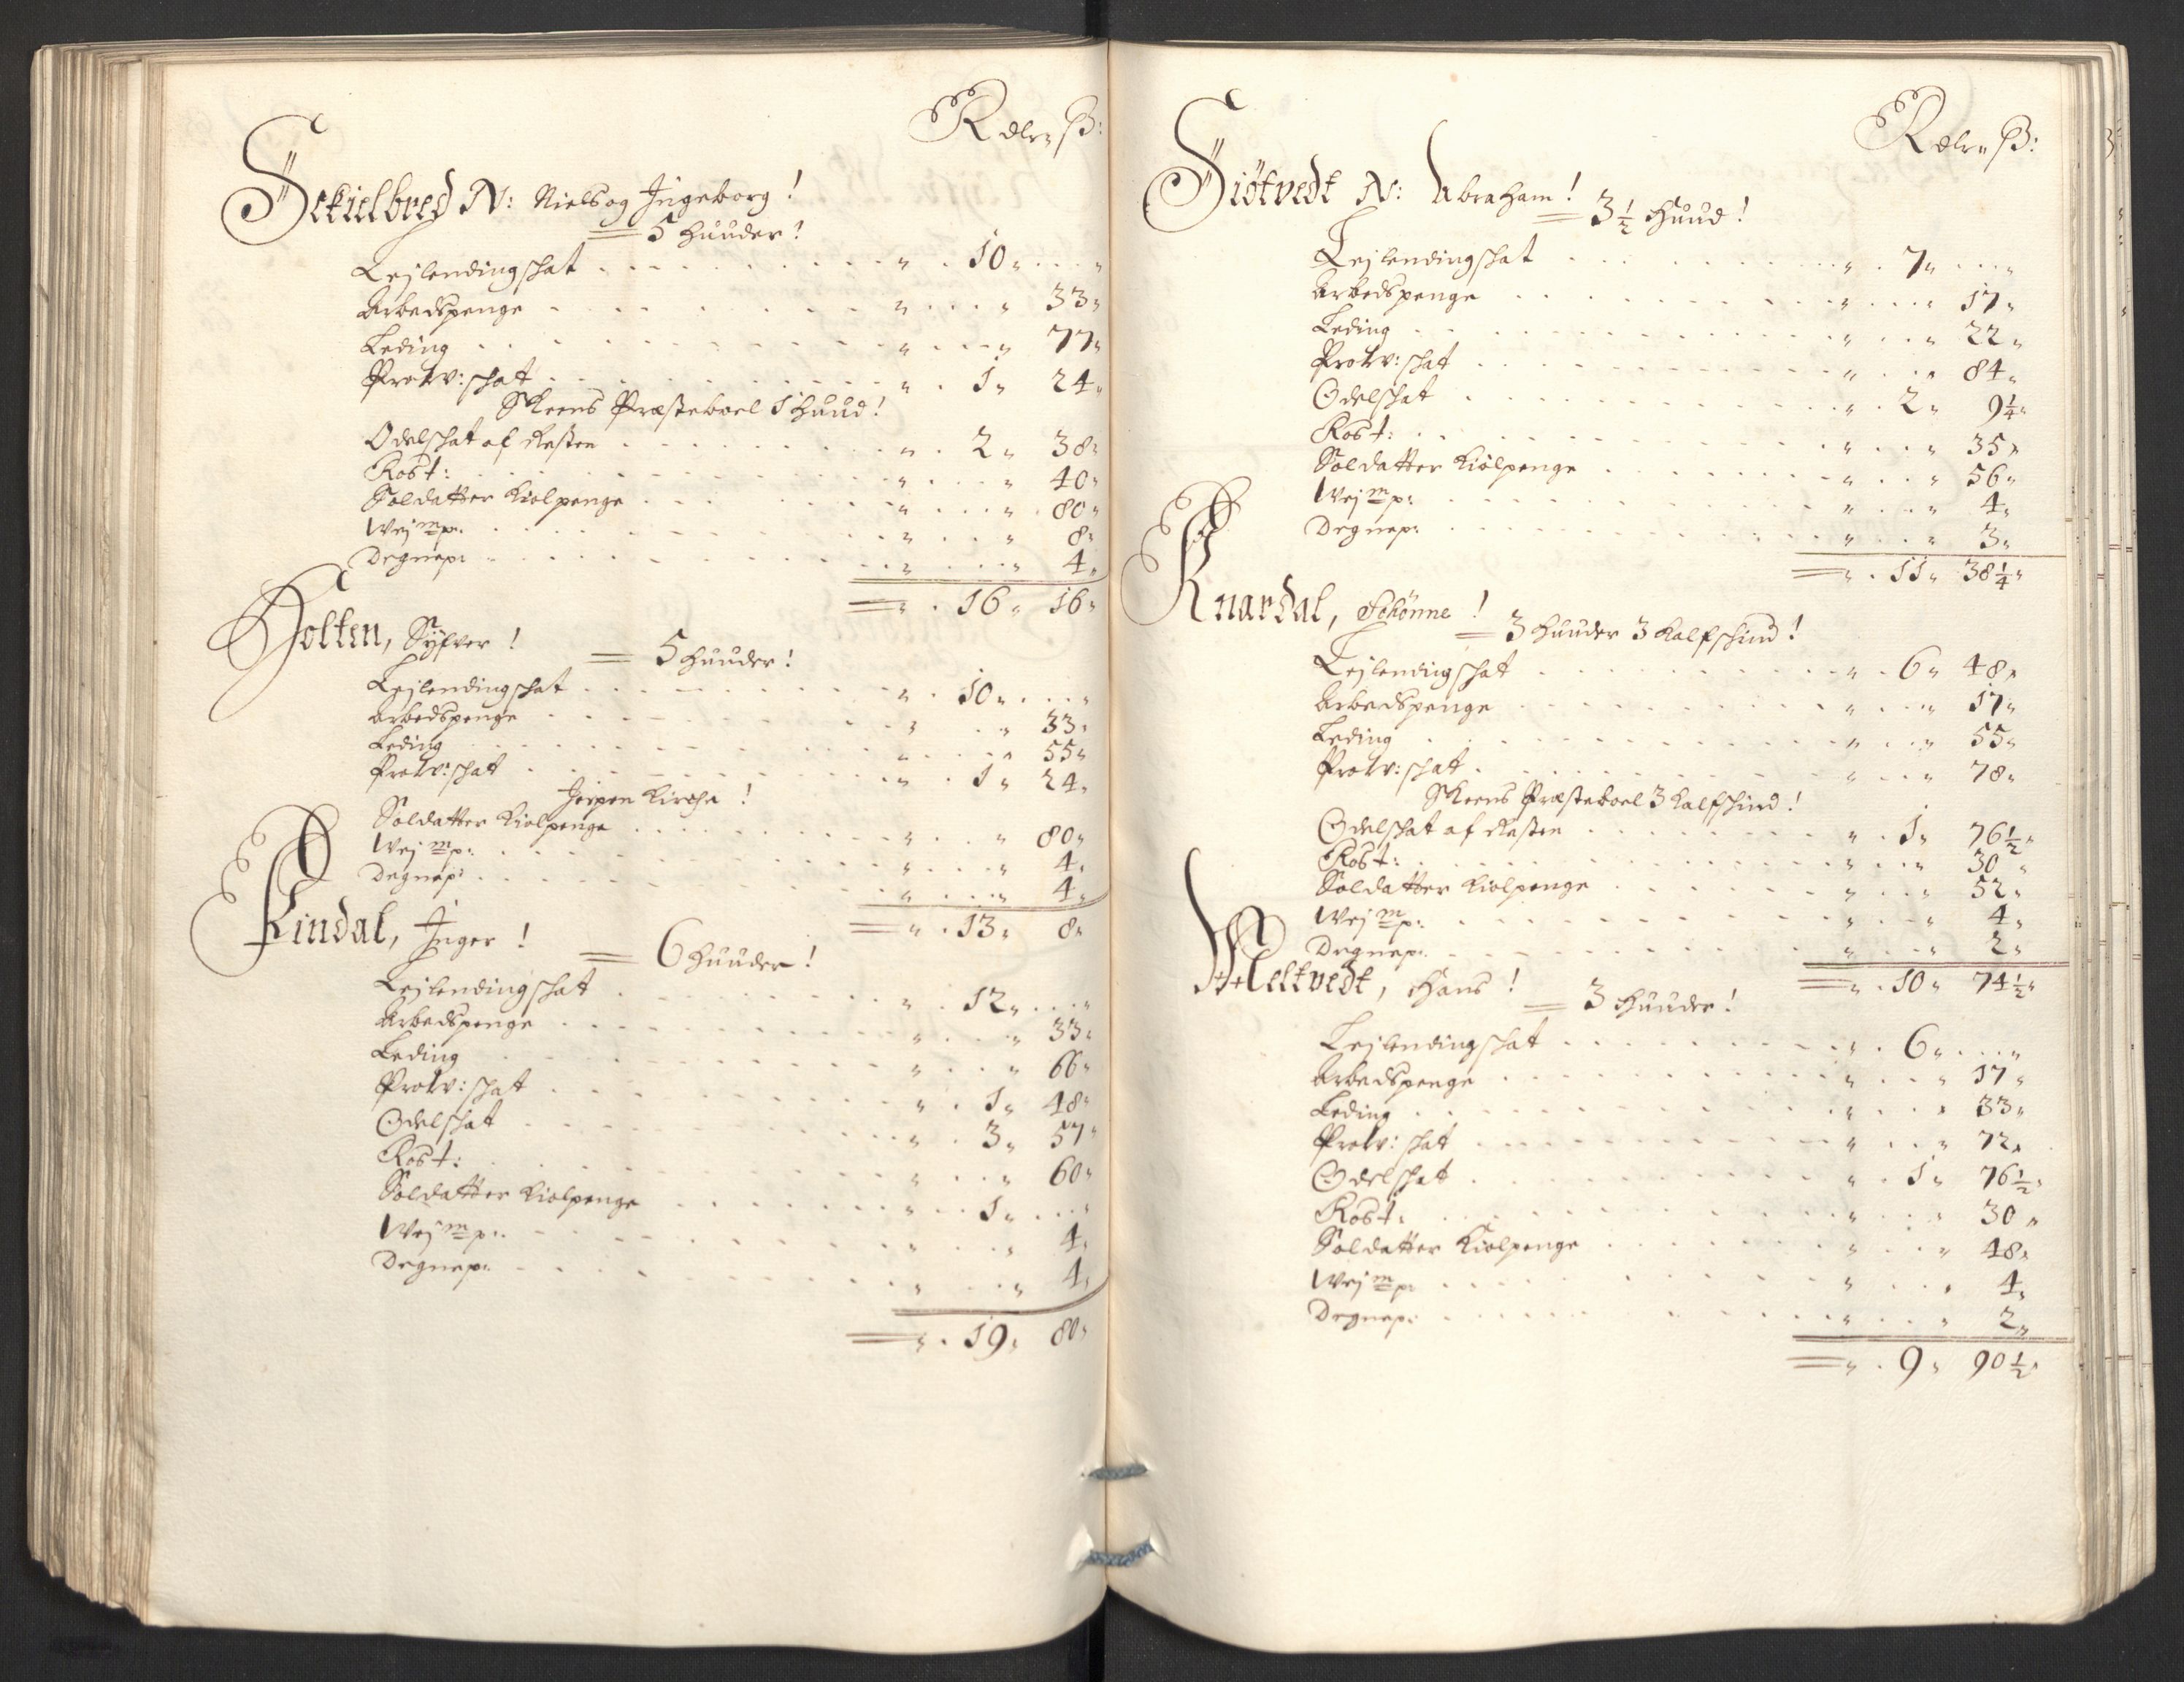 Rdlr„ ß:
Sckielbred N: Niels og Ingeborg!
= 5 Huuder!
Lejlendingschat „ . 10„ . . . „
Arbedspenge „ . . . „ 33„
Leding „ . . . „ 77„
Prov: schat „ . 1„ 24„
Skeens Præsteboel 1 Huud!
Odelschat af Resten „ . 2„ 38„
Rost: „ . . . „ 40„
Soldatter Kiolpenge „ . . . „ 80„
Wej mp: „ . . . „ 8„
Degnep: „ . . . „ 4„
= „ . 16„ 16„
Holten, Syfver!
= 5 Huuder!
Lejlendingschat „ . 10„ . . . „
Arbedspenge „ . . „ 33„
Leding „ . . . „ 55„
Prov: schat „ . 1„ 24„
Jerpen Kirche!
Soldatter Kiolpenge „ . . . „ 80„
Wej mp: „ . . . „ 4„
Degnep: „ . . . „ 4„
= „ . 13„ 8„
Rindal, Inger!
= 6 Huuder!
Lejlendingschat „ . 12„ . . . „
Arbedspenge „ . . . „ 33„
Leding „ . . . „ 66„
Prov: schat „ . 1„ 48„
Odelschat „ . 3„ 57„
Rost: „ . . . „ 60„
Soldatter Kiolpenge „ . 1„ . . . „
Wej mp: „ . . . „ 4„
Degnep: „ . . . „ 4„
= „ . 19„ 80„
Rdlr„ ß:
Siötvedt N: Abraham!
= 3 1/2 Huud!
Lejlendingschat „ . 7„ . . . „
Arbedspenge „ . . . „ 17„
Leding „ . . . „ 22„
Prov: schat „ . . . „ 84„
Odelschat „ . 2„ 9 1/4„
Rost: „ . . . „ 35„
Soldatter Kiolpenge „ . . . „ 56„
Wej mp: „ . . . „ 4„
Degnep: „ . . . „ 3„
= „ . 11„ 38 1/4„
Knardal, Schönne!
= 3 Huuder 3 Kalfschind!
Lejlendingschat „ . 6„ 48„
Arbedspenge „ . . . „ 17„
Leding „ . . . „ 55„
Prov: schat „ . . . „ 78„
Skeens Præsteboel 3 Kalfschind!
Odelschat af Resten „ . 1„ 76 1/2„
Rost: „ . . . „ 30„
Soldatter Kiolpenge „ . . . „ 52„
Wej mp: „ . . . „ 4„
Degnep: „ . . . „ 2„
= „ . 10„ 74 1/2„
Meltvedt, Hans!
= 3 Huuder!
Lejlendingschat „ . 6„ . . . „
Arbedspenge „ . . . „ 17„
Leding „ . . . „ 33„
Prov: schat „ . . . „ 72„
Odelschat „ . 1„ 76 1/2„
Rost: „ . . . „ 30„
Soldatter Kiolpenge „ . . . „ 48„
Wej mp: „ . . . „ 4„
Degnep: „ . . . „ 2„
= „ . 9„ 90 1/2„